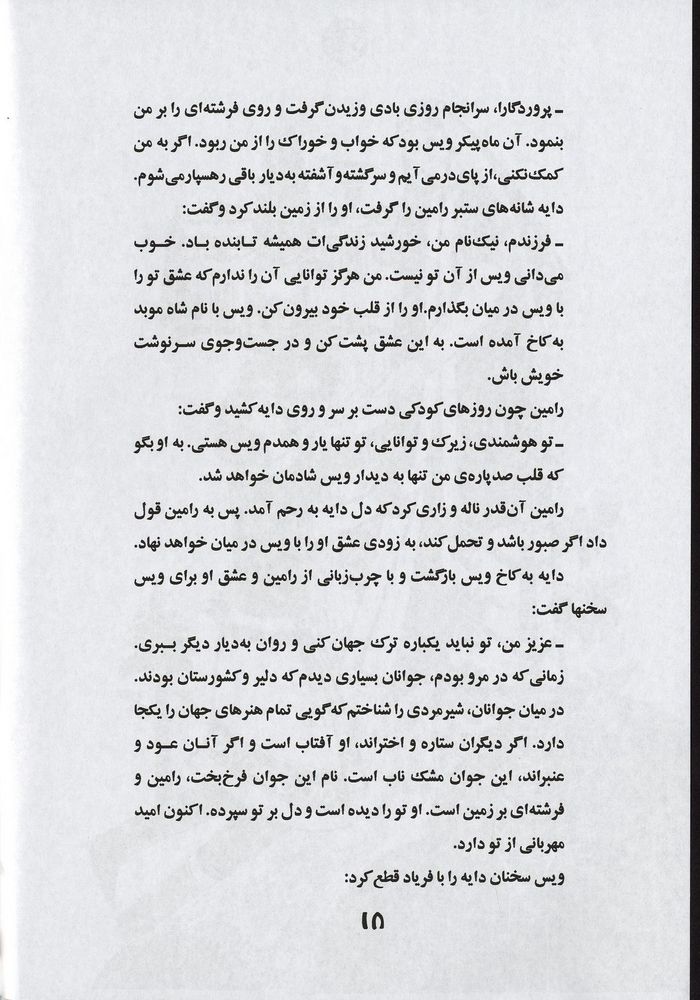 ـ پروردگارا، سرانجام روزی بادی وزیدن گرفت و روی فرشته‌ای را بر من
بنمود. آن ماه‌پیکر ویس بود که خواب و خوراک را از من ربود. اگر به من
کمک نکنی، از پای درمی‌آیم و سرگشته و آشفته به دیار باقی رهسپار می‌شوم.
دایه شانه‌های ستبر رامین را گرفت، او را از زمین بلند کرد و گفت:
ـ فرزندم، نیک‌نام من، خورشید زندگی‌ات همیشه تابنده باد. خوب
می‌دانی ویس از آن تو نیست. من هرگز توانایی آن را ندارم که عشق تو را
با ویس در میان بگذارم. او را از قلب خود بیرون کن. ویس با نام شاه موبد
به کاخ آمده است. به این عشق پشت کن و در جست‌وجوی سرنوشت
خویش باش.
رامین چون روزهای کودکی دست بر سر و روی دایه کشید و گفت:
ـ تو هوشمندی، زیرک و توانایی، تو تنها یار و همدم ویس هستی. به او بگو
که قلب صدپاره‌ی من تنها به دیدار ویس شادمان خواهد شد.
رامین آن‌قدر ناله و زاری کرد که دل دایه به رحم آمد. پس به رامین قول
داد اگر صبور باشد و تحمل کند، به زودی عشق او را با ویس در میان خواهد نهاد.
دایه به کاخ ویس بازگشت و با چرب‌زبانی از رامین و عشق او برای ویس
سخنها گفت:
ـ عزیز من، تو نباید یکباره ترک جهان کنی و روان به دیار دیگر ببری.
زمانی که در مرو بودم، جوانان بسیاری دیدم که دلیر و کشورستان بودند.
در میان جوانان، شیرمردی را شناختم که گویی تمام هنرهای جهان را یکجا
دارد. اگر دیگران ستاره و اختراند، او آفتاب است و اگر آنان عود و
عنبراند، این جوان مشک ناب است. نام این جوان فرخ‌بخت، رامین و
فرشته‌ای بر زمین است. او تو را دیده است و دل بر تو سپرده. اکنون امید
مهربانی از تو دارد.
ویس سخنان دایه را با فریاد قطع کرد:
۱۸